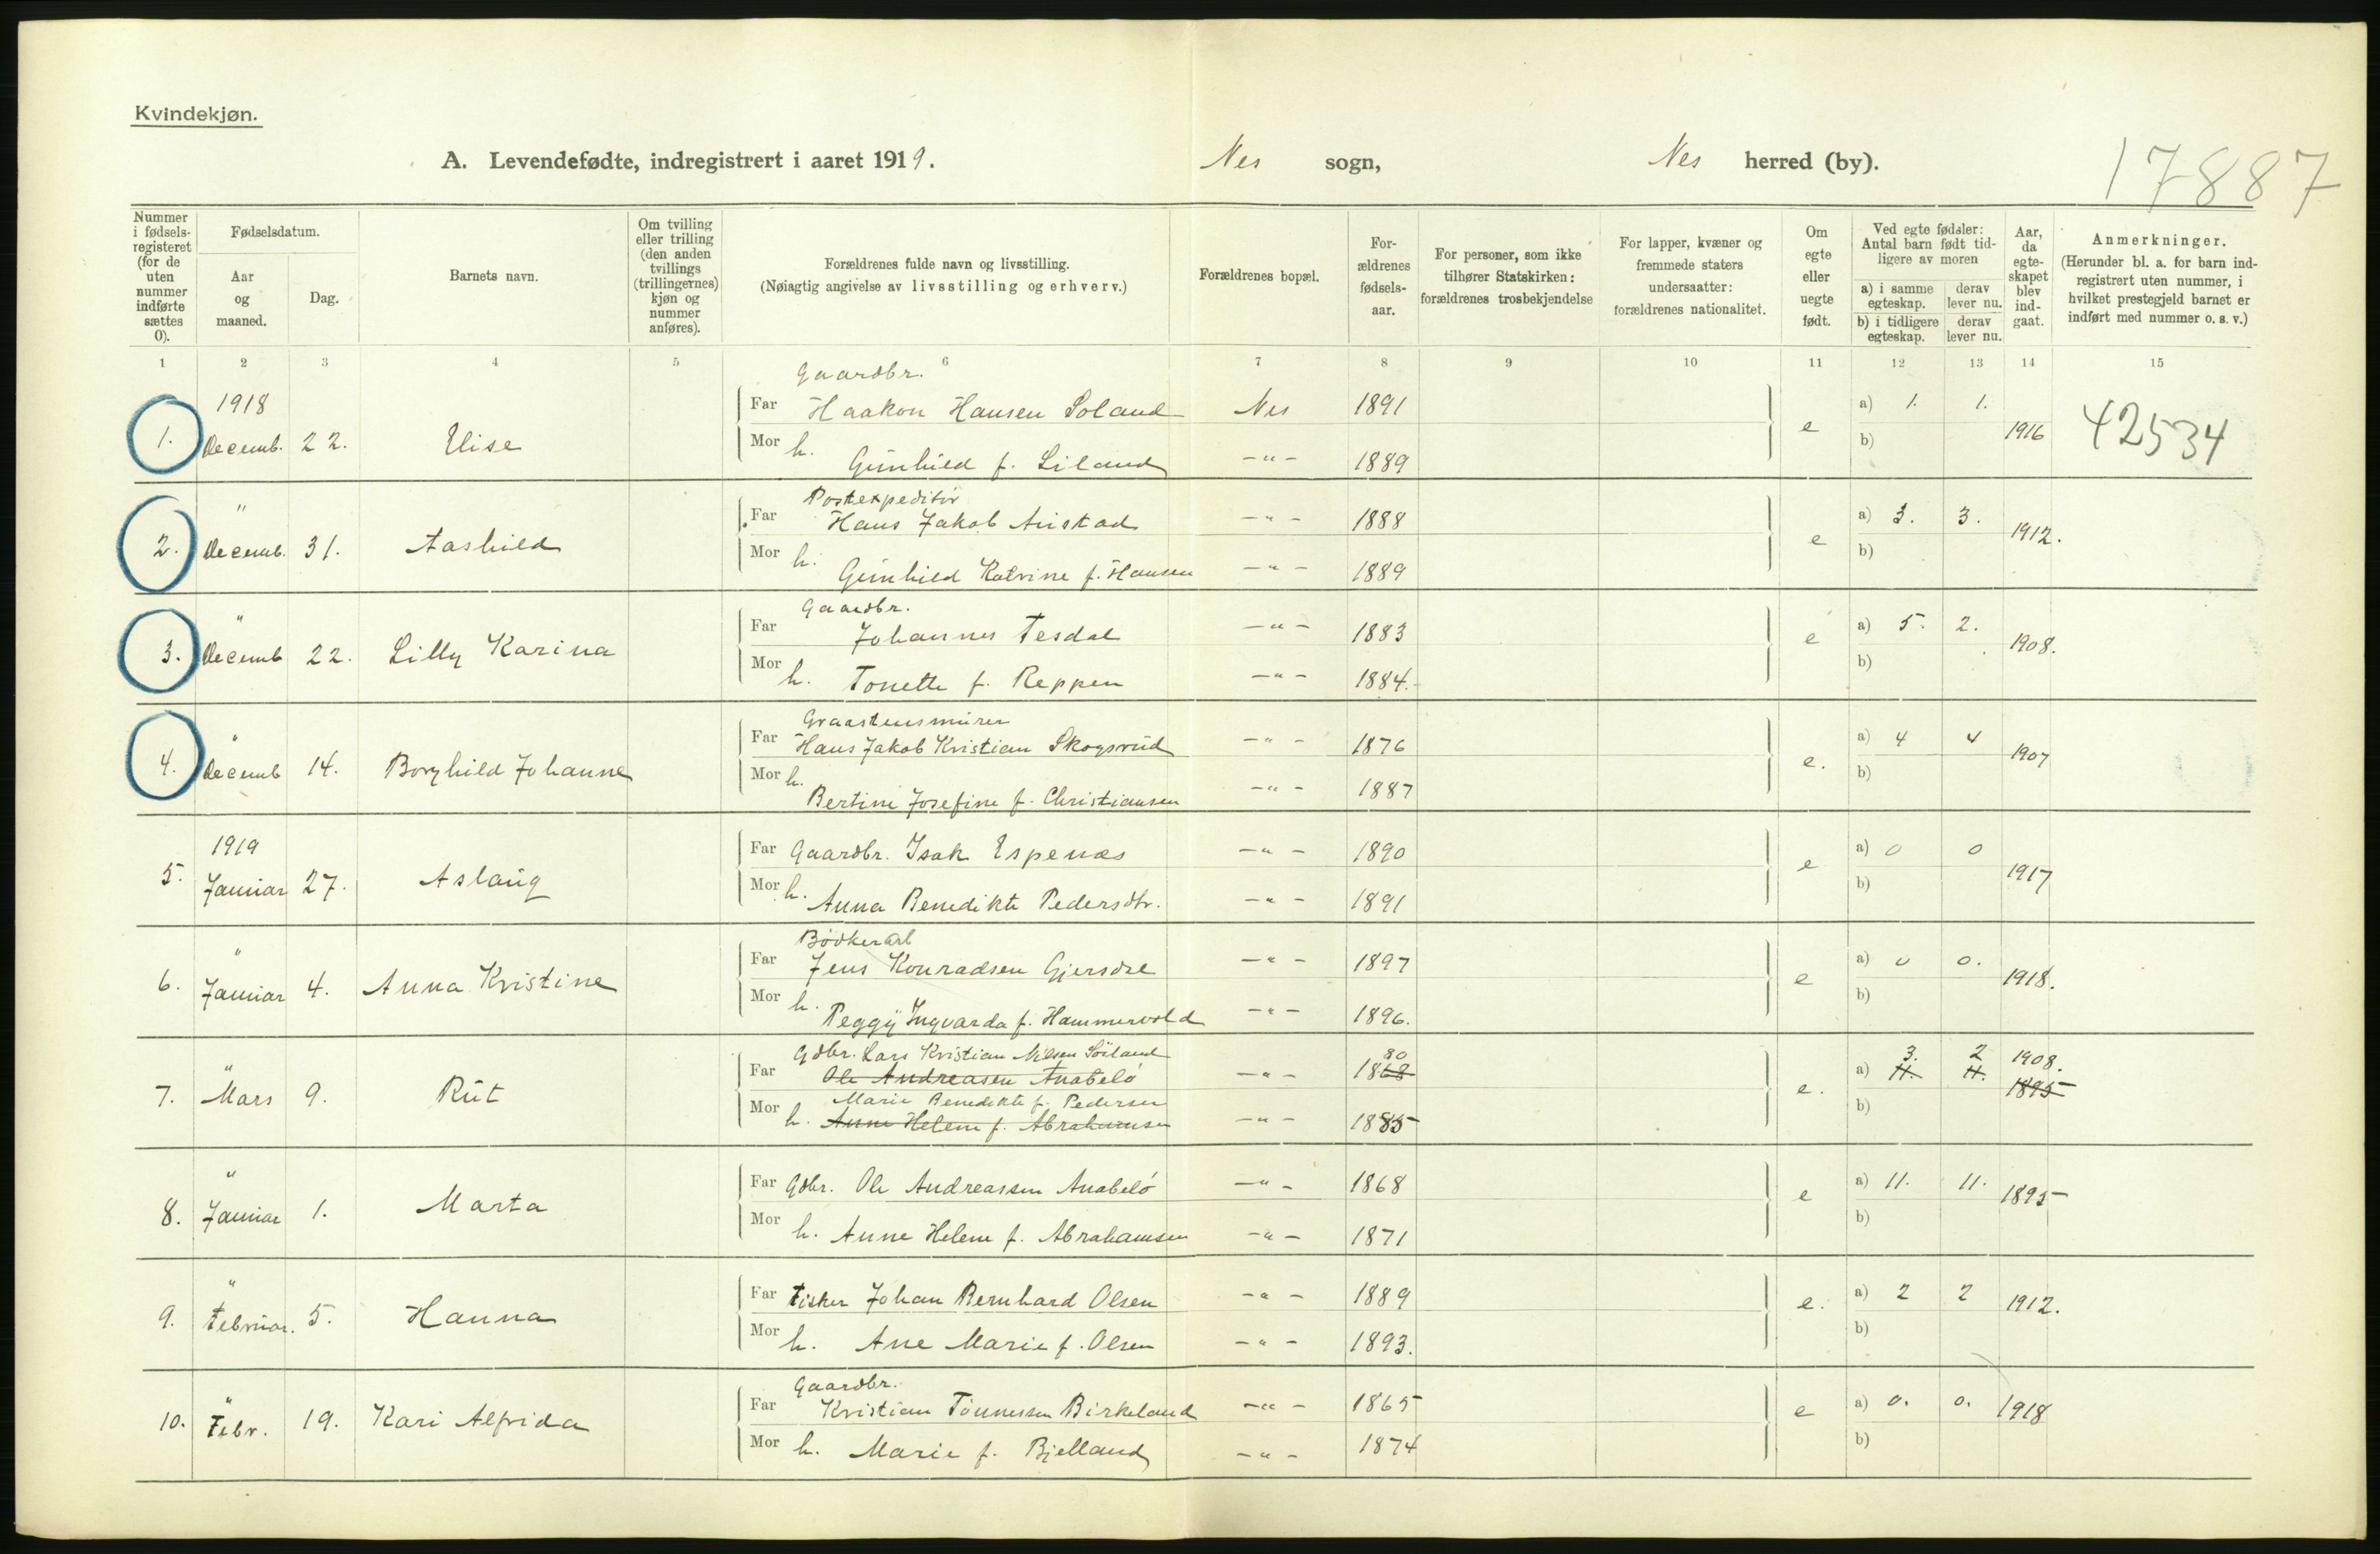 Kvindekjøn.
A. Levendefødte, indregistrert i aaret 1919. Nes sogn, Nes herred (by).
17887
Nummer i fødselsregisteret (for de uten nummer indførte sættes 0). Fødselsdatum. Aar og maaned. Dag. Barnets navn. Om tvilling eller trilling (den anden tvillings (trillingernes) kjøn og nummer anføres). Forældrenes fulde navn og livsstilling. (Nøiagtig angivelse av livsstilling og erhverv.) Forældrenes bopæl. Forældrenes fødselsaar. For personer, som ikke tilhører Statskirken: forældrenes trosbekjendelse For lapper, kvæner og fremmede staters undersaatter: forældrenes nationalitet. Om egte eller uegte født. Ved egte fødsler: Antal barn født tidligere av moren a) i samme egteskap. derav lever nu. b) i tidligere egteskap. derav lever nu. Aar, da egteskapet blev indgaat. Anmerkninger. (Herunder bl. a. for barn indregistrert uten nummer, i hvilket prestegjeld barnet er indført med nummer o. s. v.)
1 2 3 4 5 6 7 8 9 10 11 12 13 14 15
Gaardbr.
1918 Far Haakon Hansen Soland Nes 1891 a) 1. 1.
1. Decemb. 22. Elise e 1916 42534
Mor h. Gunhild f. Liland -"- 1889 b)
Postexpeditør
" Far Hans Jakob Austad -"- 1888 a) 3. 3.
2. Decemb. 31. Aashild e 1912.
Mor h. Gunhild Katrine f. Hansen -"- 1889 b)
Gaardbr.
" Far Johannes Tesdal -"- 1883 a) 5. 2.
3. Decemb 22. Lilly Karina e 1908.
Mor h. Tonette f. Reppen -"- 1884. b)
Graastensmurer
" Far Hans Jakob Kristian Skogsrud -"- 1876 a) 4 4
4. Decemb 14. Borghild Johanne e. 1907
Mor h. Bertine Josefine f. Christiansen -"- 1887 b)
1919 Far Gaardbr. Isak Espenæs -"- 1890 a) 0 0
5. Januar 27. Aslaug e 1917
Mor h. Anna Benedikte Pedersdtr. -"- 1891 b)
Bødkerarb
" Far Jens Konradsen Gjersdal -"- 1897 a) 0 0.
6. Januar 4. Anna Kristine e 1918.
Mor h. Peggy Ingvarda f. Hammervold -"- 1896. b)
Gdbr. Lars Kristian Nilsen Söiland 80 3. 2 1908.
" Far Ole Andreasen Anabelø -"- 1868 a) 11. 11. 1895
7. Mars 9. Rut e.
Marie Benedikte f. Pedersen
Mor h. Anne Helene f. Abrahamsen -"- 1885 b)
" Far Gdbr. Ole Andreassen Anabelø -"- 1868 a) 11. 11.
8. Januar 1. Marta e 1895
Mor h. Anne Helene f. Abrahamsen -"- 1871 b)
" Far Fisker Johan Bernhard Olsen -"- 1889 a) 2 2
9. Februar. 5. Hanna e. 1912.
Mor h. Ane Marie f. Olsen -"- 1893. b)
Gaardbr.
" Far Kristian Tönnessen Birkeland -"- 1865 a) 0. 0.
10. Febr. 19. Kari Alfrida e 1918
Mor h. Marie f. Bjelland -"- 1874 b)